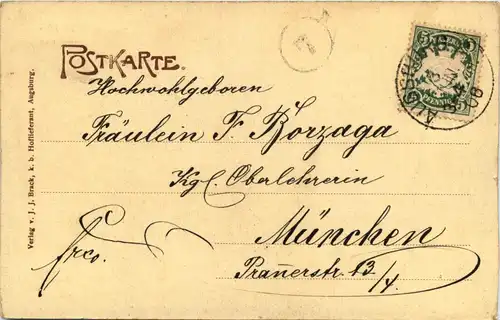 POSTKARTE.
Hochwohlgeboren
Fräulein F. Borzaga
Kgl. Oberlehrerin
München
Pran̄erstr. 13/4.
frco.
Verlag v. J. J. Brack, k. b. Hoflieferant, Augsburg.
5
PFENNIG